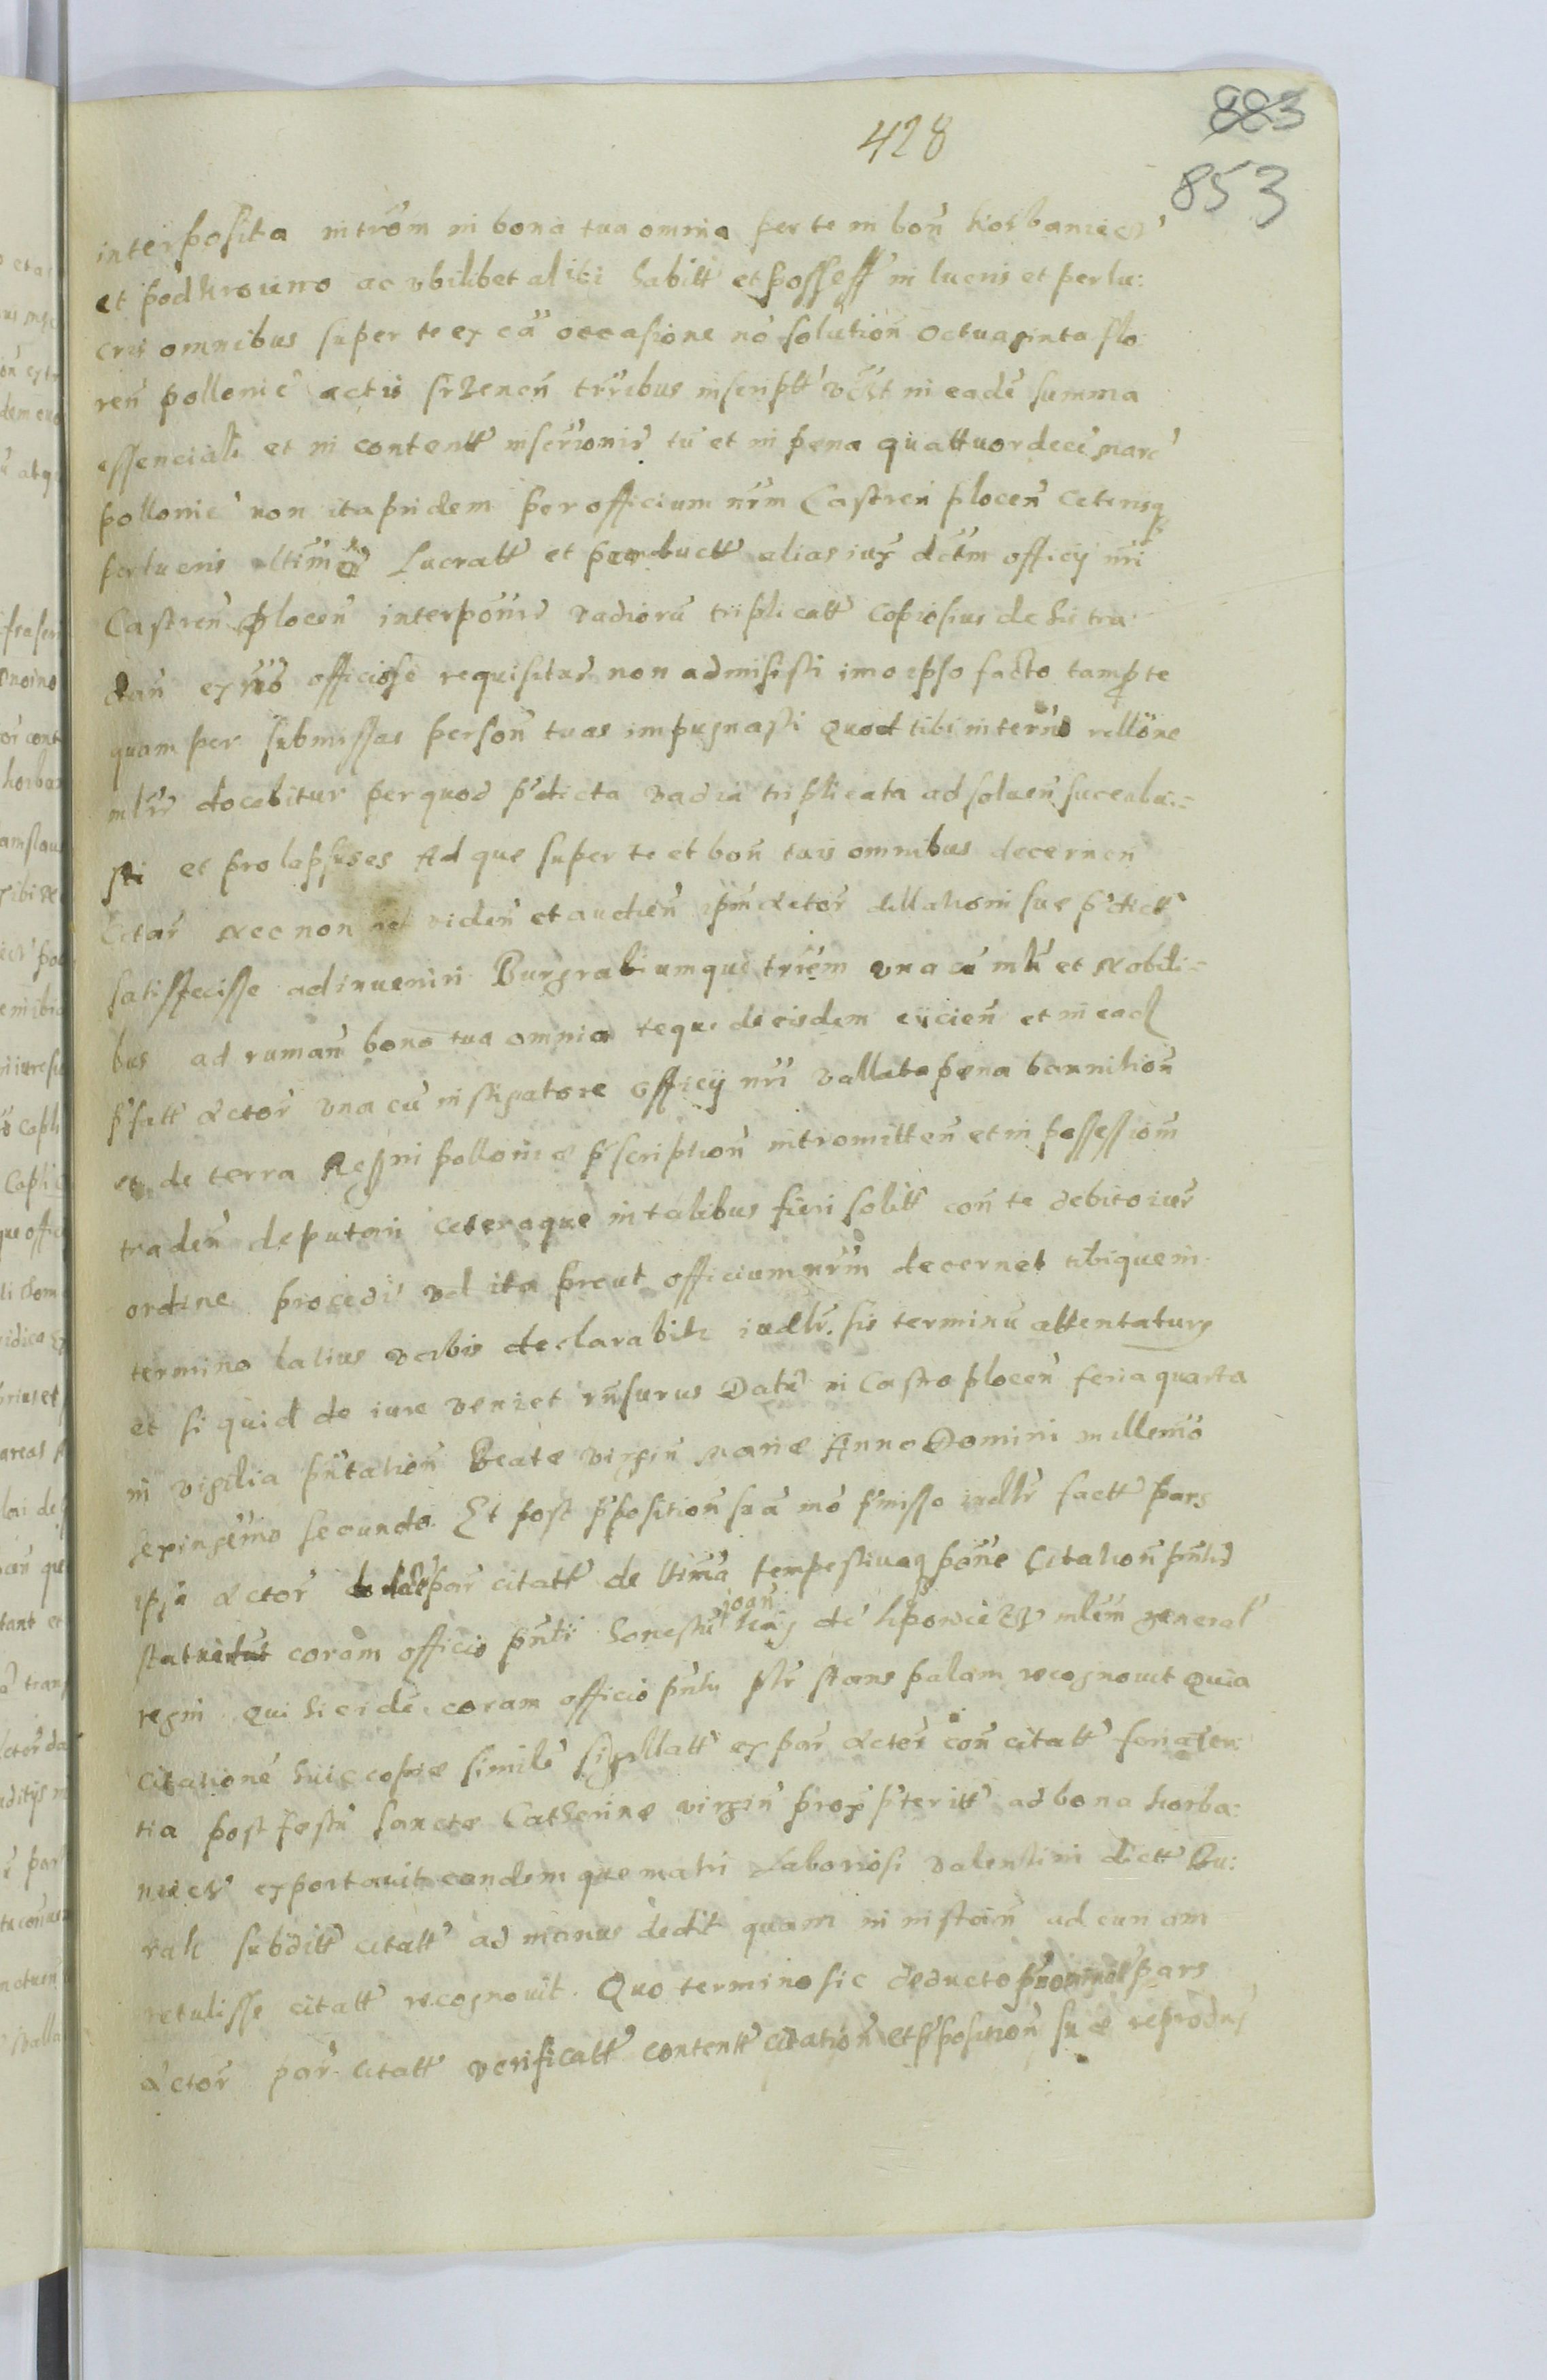 883
428
853
interposita introm in bona tua omnia per te in bon̄ Korbaniecz
et podkrowno ac vbilibet alibi habitt et possess in lucris et perlu:
cris omnibus super te ex ea occasione nō solution̄ octuaginta flo
ren̄ pollonic actis srzenen̄ trr̄ibus inscriptt vt̄ in eadē summa
essenciali et in contentt inscr̄ionis tū et in pena quattuordeci marc
pollonic non ita pridem per officium nrm̄ Castren̄ plocen̄ ceterisq
perlucris Lucratt et alias iux dctm officij nri
Castren̄ plocen̄ interpoīs vadiorū triplicatt copiosius de his tra
dan̄ ex nō officiose requisitus non admisisti imo ipso facto tam p te
quam per submissas person̄ tuas impugnasti quod tibi in ternō rellone
mlr̄ docebitur per quod p̄dicta vadia triplicata ad soluen̄ succubu:
sti et prolapsus es Ad que super te et bon̄ tuis omnibus decernen̄
Citar̄ necnon viden̄ et audien̄ ipm̄ actor̄ dillationi sue p̄dictt
satisfecisse adinueniri Burgrabiumque trr̄em vna cū mlr̄i et Nobili=
bus ad ruman̄ bona tua omnia teque de eisdem eijcien̄ et in ead
p̄fatt actor̄ vna cū instigatore officij nri vallata pena bannition̄
et de terra Regni pollonie p̄scription̄ intromitten̄ et in possession̄
traden̄ deputari ceteraque in talibus fieri solitt con̄ te debito iur̄
ordine procedi vel ita prout officium nrm̄ decernet tibique in
termino latius verbis declarabitr iudlr̄. sis terminū attentaturg
et si quid de iure veniet rn̄surus Datū in Castro plocen̄ feria quarta
in vigilia pn̄tation̄ Beate Virgin̄ marie Anno Domini millemō
sexingemo secundo. Et post p̄position̄ suā mō p̄misso iudlr̄ factt pars
ipsa actor̄ par citatt de ltīma tempestiuaq pōne Citation̄ pn̄tis
coram officio pn̄ti honestū joan̄ de liponiecz mlr̄em general
regni qui hic eidē coram officio pn̄ti plr̄ stans palam recognouit Quia
citationē huic copie simile sigillatt ex par̄ actor̄ con̄ citatt feria ter:
tia post festū sancte Catherine virgin̄ prox p̄teritt ad bona korba:
niecz exportauit eandem que matri Laboriosi Valentini dictt Bu:
rak subditt citatt ad manus dedit quam in instan̄ ad curiam
retulisse citatt recognouit. Quo termino sic deducto p̄nominat pars
actor̄ par citatt verificatt contentt citation̄ et p̄position̄ sue reproduxit